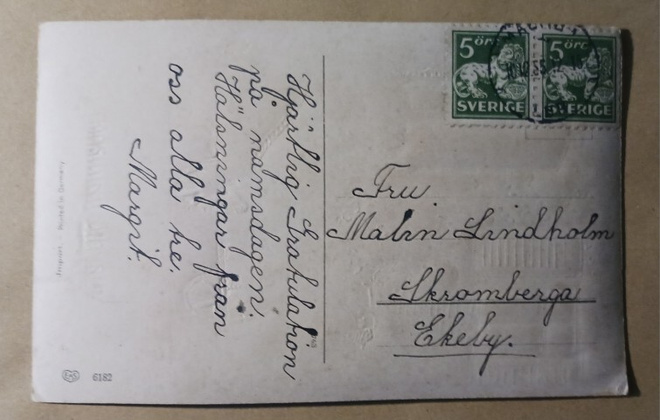 Hjärtlig Gratulation
på namsdagen.
Hälsningar från
oss alla tre.
Margit.
5 öre
SVERIGE
5 öre
SVERIGE
Fru
Malin Lindholm
Skromberga
Ekeby.
Printed in Germany
6182